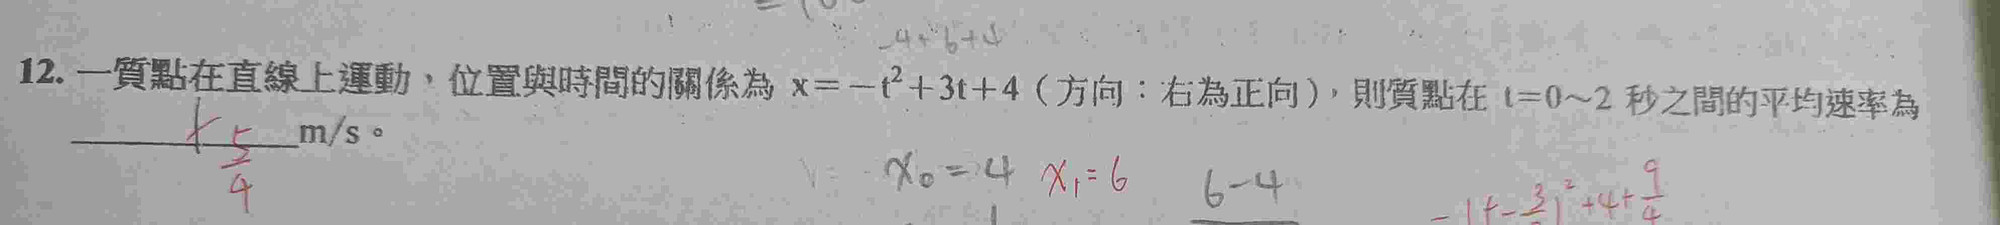 -4+6+4
12. 一質點在直線上運動，位置與時間的關係為 x＝－t²＋3t＋4（方向：右為正向），則質點在 t=0～2 秒之間的平均速率為
5/4 m/s。
x₀=4 x₁=6 6-4
+4+9/4